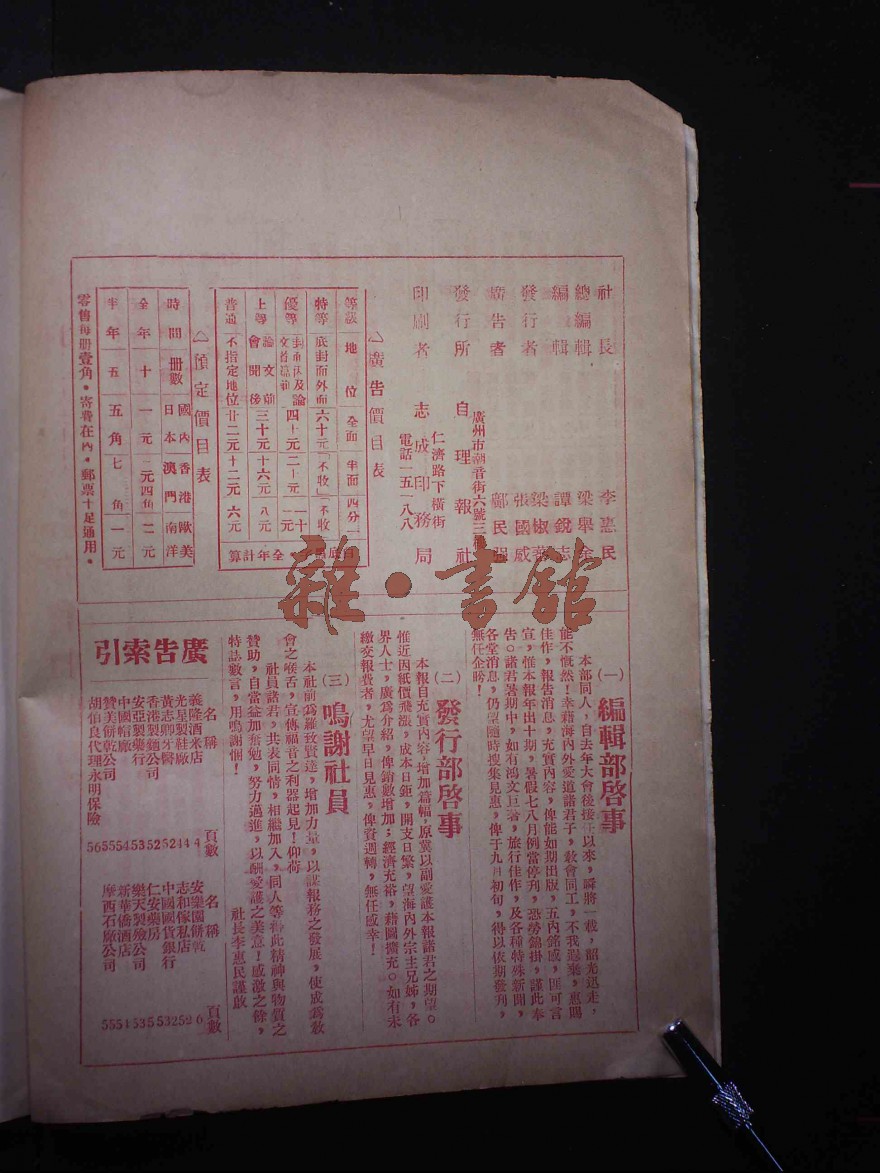 社長 李惠民
總編輯 梁舉全
編輯 譚銳志
發行者 張國威
廣告者 鄺民
廣州市潮音街六號三樓
發行所 自理報社
仁濟路下橫街
印刷者 志成印務局
電話一五一八八
△廣告價目表
等級 地位 全面 半面 四分一
特等 底封面外面 六十元 不收 不收
優等
上等 三十元 十六元 八元
普通 不指定地位 廿二元 十二元 六元
全年計算
△預定價目表
時間 册數 國內日本 香港澳門 歐美南洋
全年 十 一元 二元
半年 五 五角 七角 一元
零售每册壹角。寄費在內。郵票十足通用。
雜·書館
(一) 編輯部啓事
本部同人，自去年大會後接任以來，瞬將一載，韶光迅走，
能不慨然！幸藉海內外愛道諸君子，敎會同工，不我遐棄，惠賜
佳作，報告消息，充實內容，俾能如期出版，五內銘感，匪可言
宣，惟本報年出十期，暑假七八月例當停刋，恐勞錦掛，謹此奉
告。諸君暑期中，如有鴻文巨著，旅行佳作，及各種特殊新聞，
各堂消息，仍望隨時搜集見惠，俾于九月初旬，得以依期發刋，
無任企盼！
(二) 發行部啓事
本報自充實內容，增加篇幅，原冀以副愛護本報諸君之期望。
惟近因紙價飛漲，成本日鉅，開支日繁，望海內外宗主兄姊，各
界人士，廣爲介紹，俾銷數增加；經濟充裕，藉圖擴充。如有未
繳交報費者，尤望早日見惠，俾資週轉，無任感幸！
(三) 鳴謝社員
本社前爲羅致賢達，增加力量，以謀報務之發展，使成爲敎
會之喉舌，宣傳福音之利器起見！仰荷
社員諸君，共表同情，相繼加入，同人等得此精神與物質之
贊助，自當益加奮勉，努力邁進，以酬愛護之美意！感激之餘，
特誌數言，用鳴謝悃！
社長李惠民謹啟
廣告索引
名稱 頁數
義隆酒米店 4
光星製鞋廠 4
黃志卿牙醫
香港製麵公司 52
安亞製藥行 53
中國帽廠 54
贊美餅乾公司 55
胡伯良代理永明保險 56
名稱 頁數
安樂園餅乾 6
志和傢私店
中國國貨銀行
仁安藥房 53
樂天製殮公司 53
新華僑酒店
摩西石廠公司 55